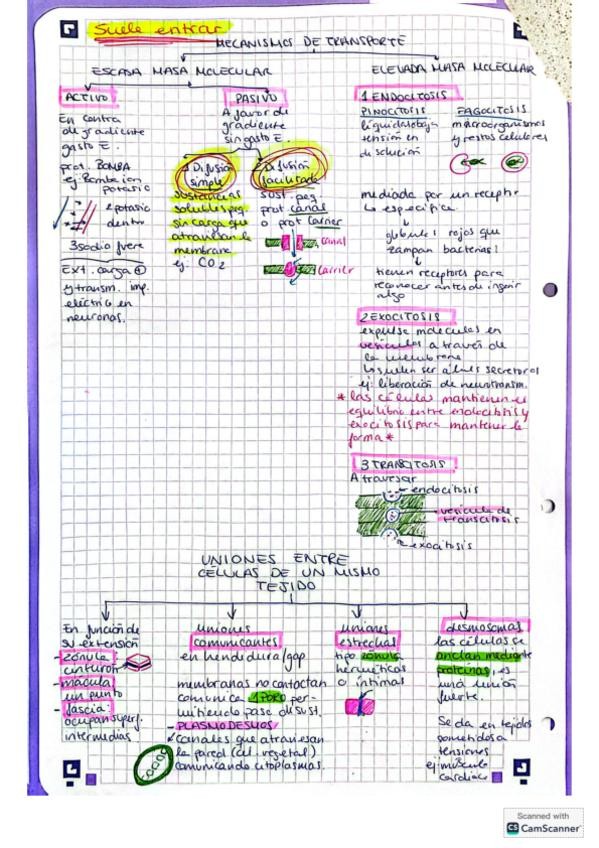 Suele entrar
MECANISMOS DE TRANSPORTE
ESCADA MASA MOLECULAR
ELEVADA MASA MOLECULAR
ACTIVO
En contra
de gradiente
gasto E.
prot. BOMBA
ej Bomba ion
potasio
potasio
dentro
3 sodio fuera
Ext. carga +
y transm. imp.
eléctrico en
neuronas.
PASIVO
A favor de
gradiente
sin gasto E.
Difusión
simple
sustancias
solubles peq.
sin carga que
atraviesan la
membrana
ej: CO2
Difusión
facilitada
sust. peq.
prot. canal
o prot carrier
canal
carrier
1 ENDOCITOSIS
PINOCITOSIS
líquidos baja
tensión en
disolución
FAGOCITOSIS
microorganismos
y restos celulares
mediada por un receptor
específica
globulos rojos que
zampan bacterias!
tienen receptores para
reconocer antes de ingerir
algo
2 EXOCITOSIS
expulse moléculas en
vesículas a través de
la membrana
suelen ser células secretoras
ej: liberación de neurotransm.
* las células mantienen el
equilibrio entre endocitosis y
exocitosis para mantener la
forma *
3 TRANSCITOSIS
Atravesar
endocitosis
vesícula de
transcitosis
exocitosis
UNIONES ENTRE
CÉLULAS DE UN MISMO
TEJIDO
En función de
su extensión
- zónula
cinturón
- mácula
un punto
- fascia:
ocupan superf.
intermedias
uniones
comunicantes
en hendidura/gap
membranas no contactan
comunica 1 poro per-
mitiendo paso de sust.
- PLASMODESMOS
canales que atraviesan
la pared (cel. vegetal)
comunicando citoplasmas.
uniones
estrechas
tipo zónula
herméticas
o íntimas
desmosomas
las células se
anclan mediante
proteínas, es
una unión
fuerte.
Se da en tejidos
sometidos a
tensiones
ej: músculo
cardíaco
Scanned with
CS CamScanner